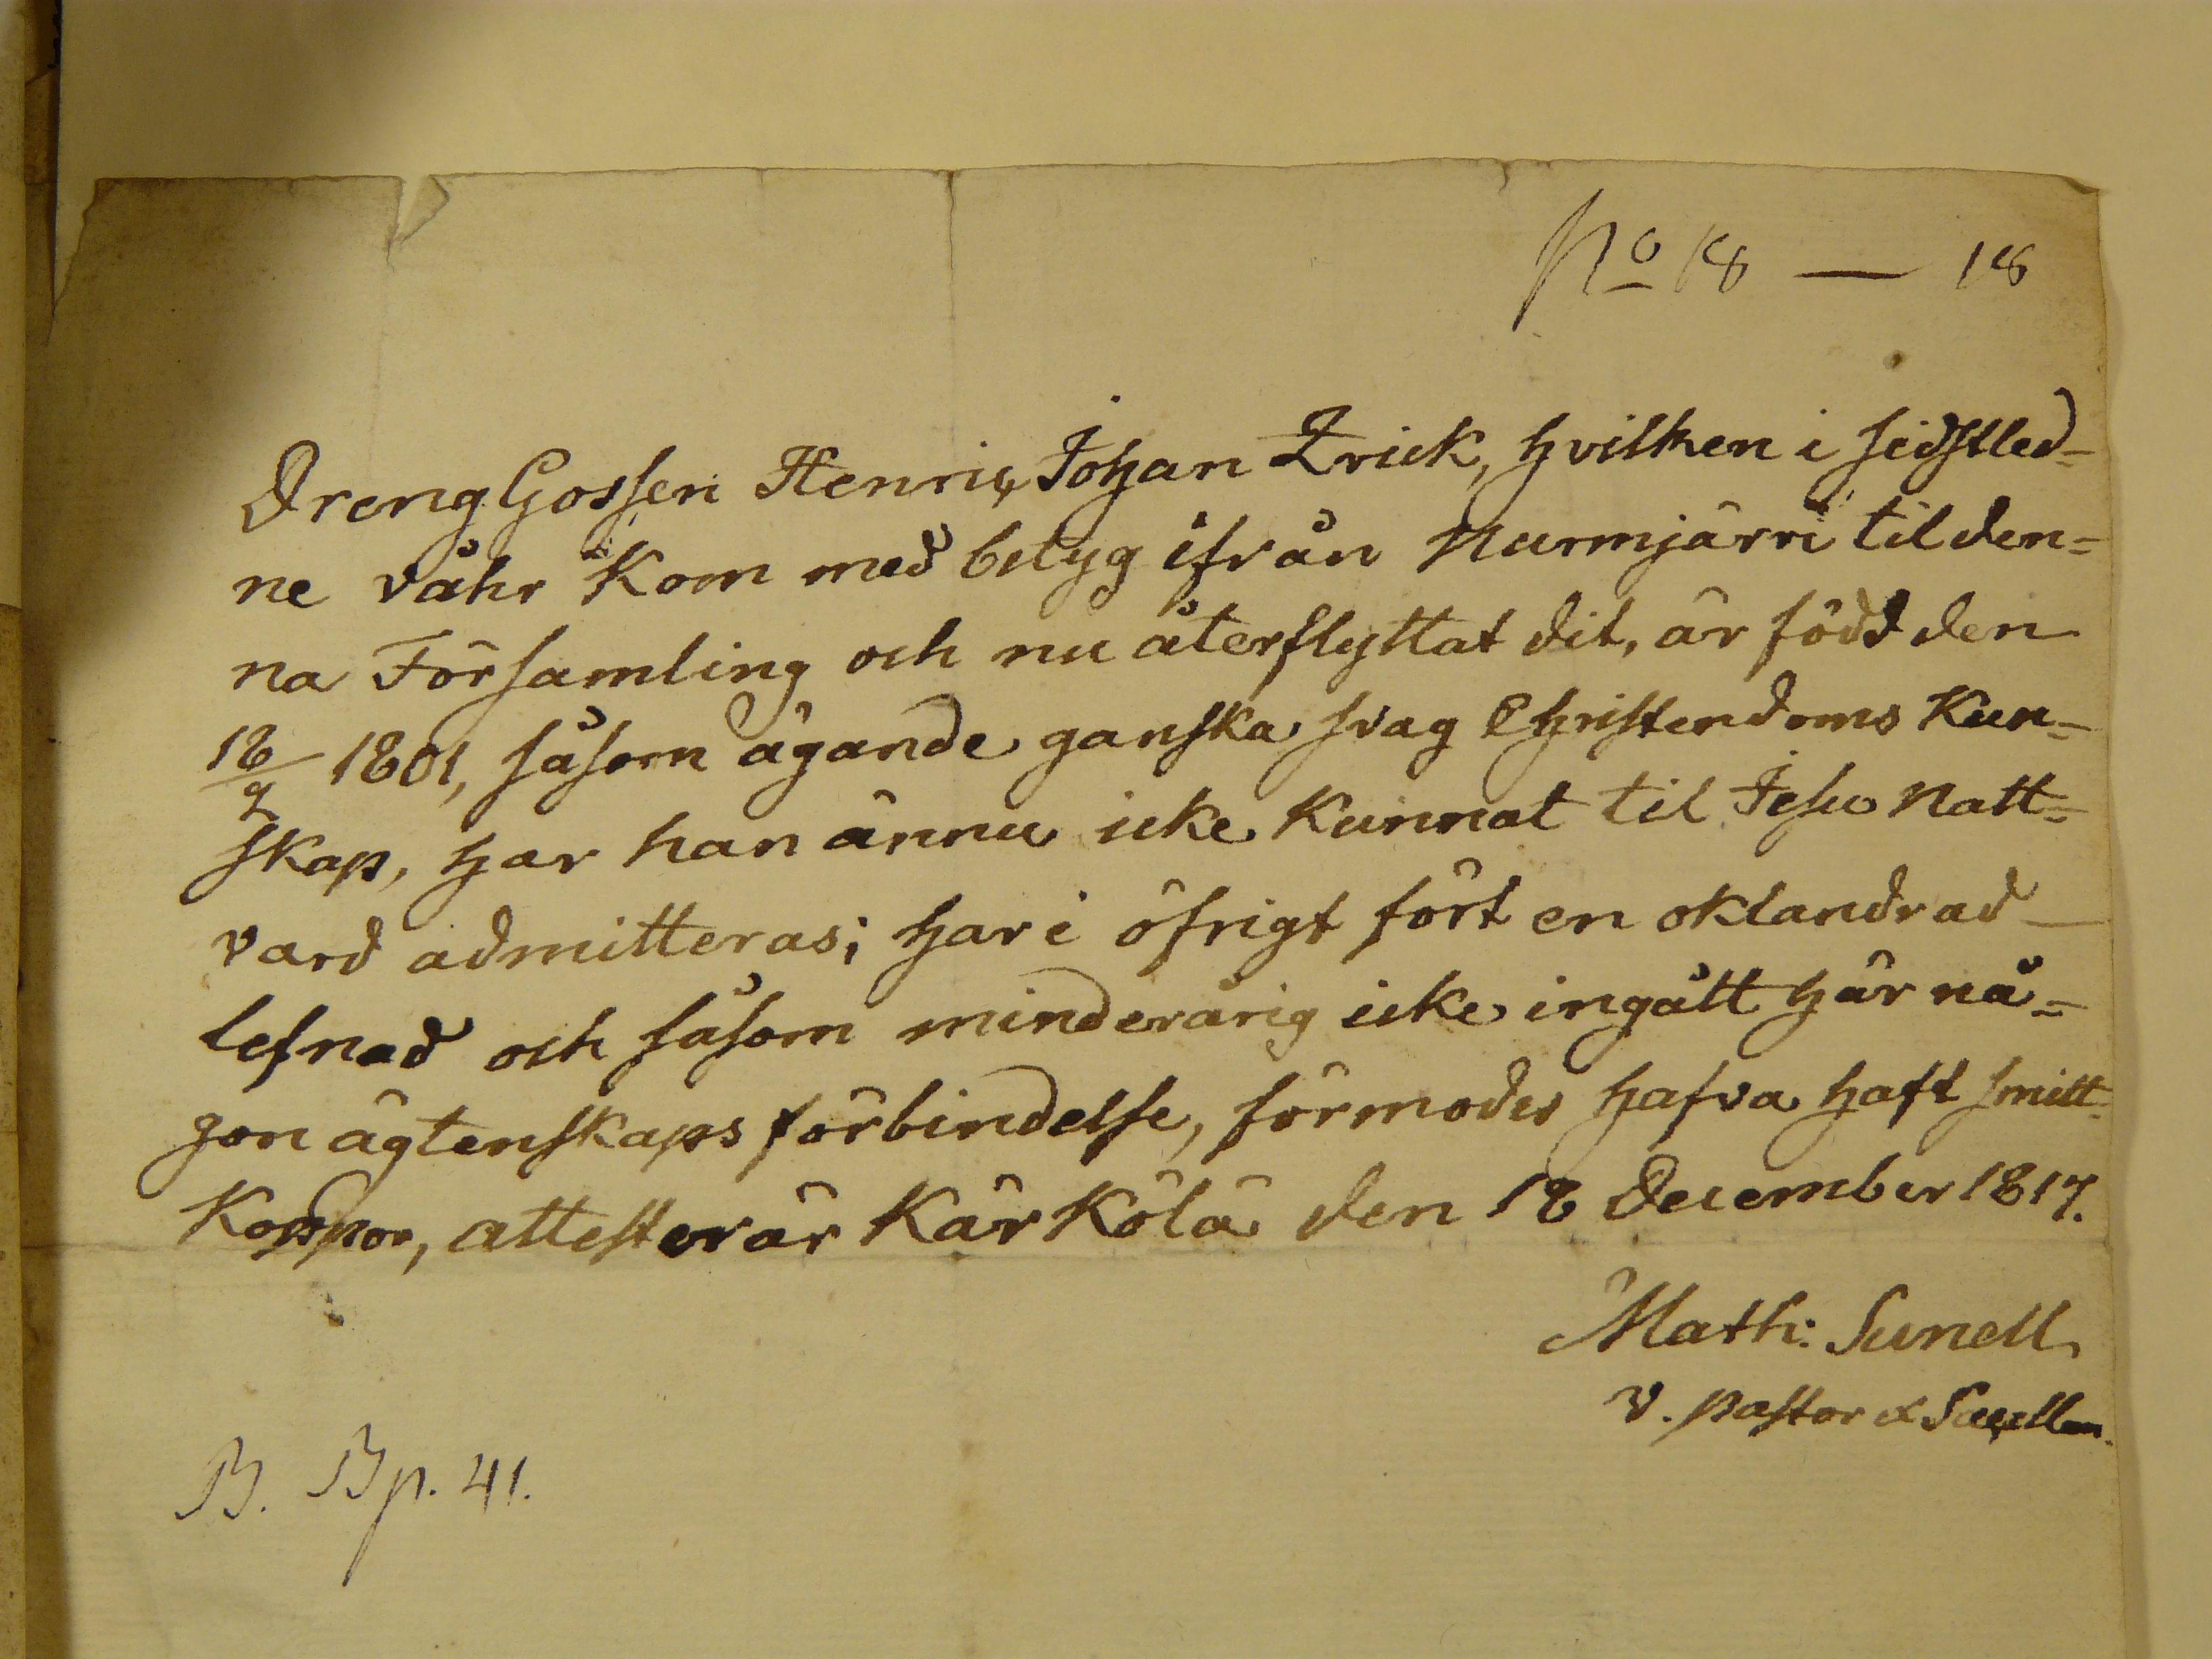 No 18 — 18
Dreng Gossen Henric Johan Erick, hvilken i sidstled-
ne våhr Kom med betyg ifrån Nurmjärvi til den=
na Församling och nu återflyttat dit, är född den
18/9 1801, såsom ägande ganska svag Christendoms Kun-
skap, har han ännu icke Kunnat til Jesu Natt=
vard admitteras; har i öfrigt fört en oklandrad
lefnad och såsom minderårig icke ingått här nå=
gon ägtenskaps förbindelse, förmodes hafva haft smitt-
Koppor, attesterar Kärkölä den 18 December 1817.
Math: Sunell
V. Pastor & Sacellan.
B. B p. 41.